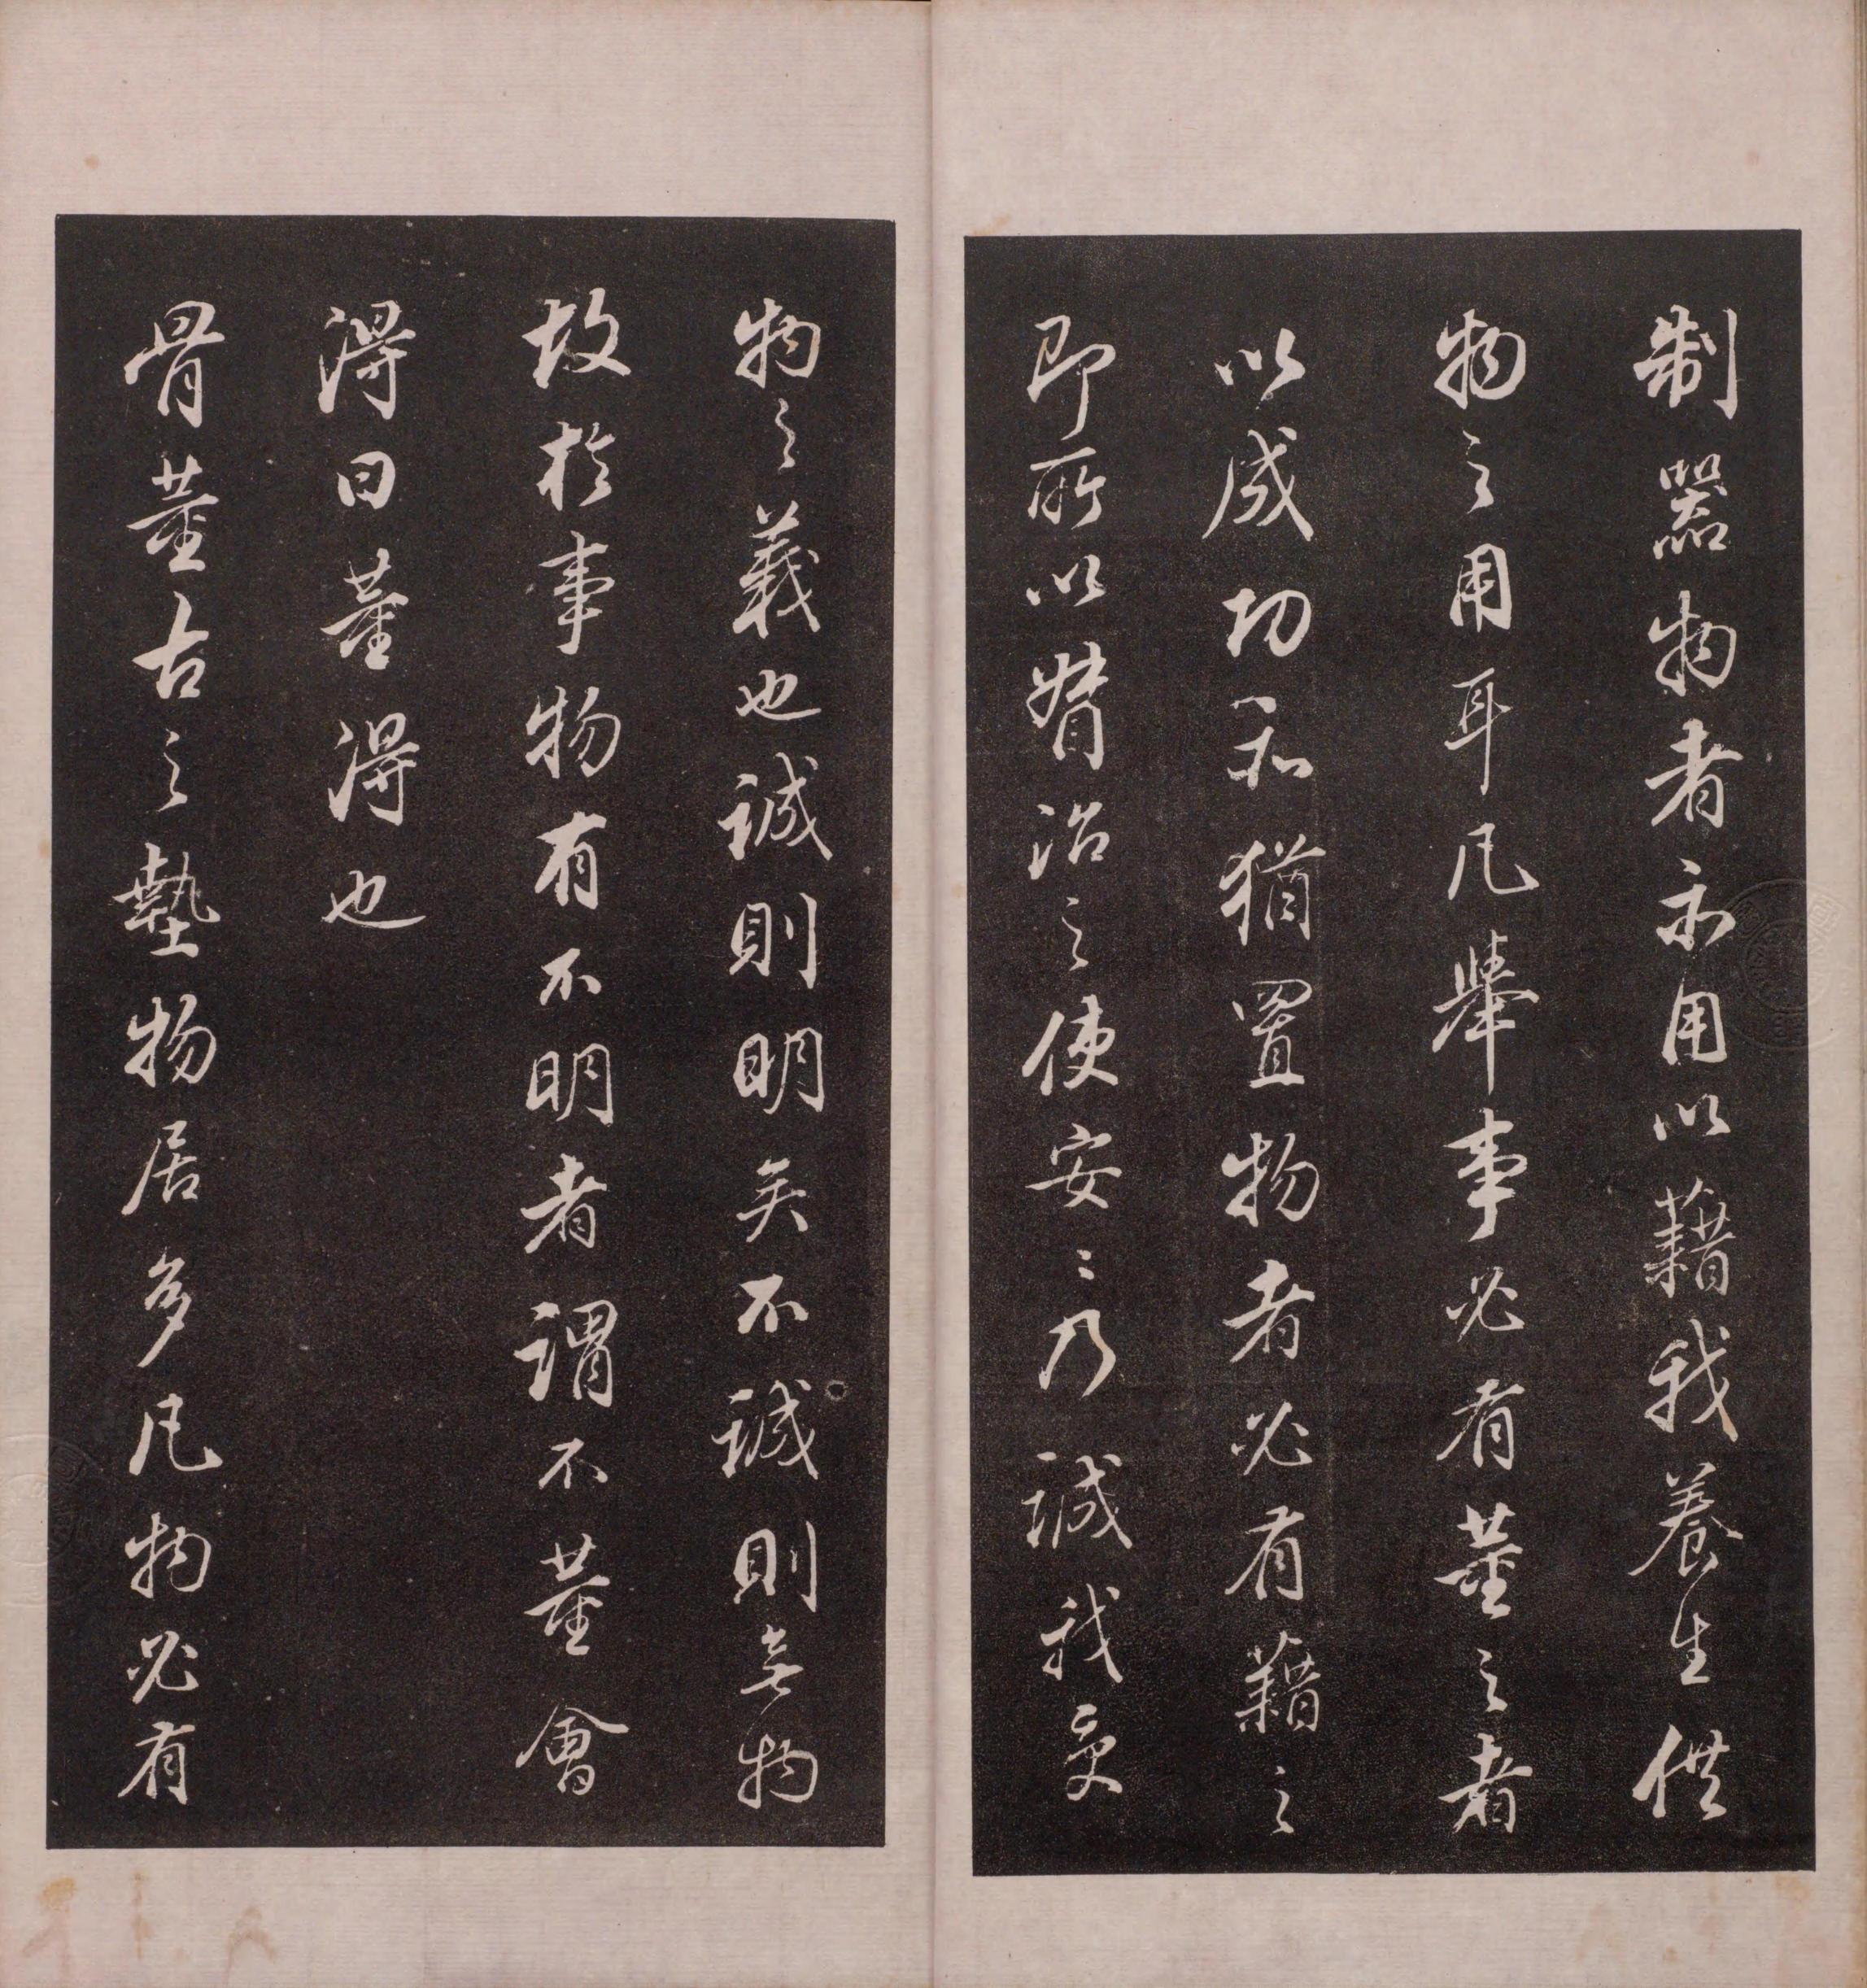 制器物者亦用以藉我養生供
物之用耳凡舉事必有董之者
以成功亦猶置物者必有藉之
即所以督治之使安〻乃誠我受
物之義也誠則明矣不誠則無物
故於事物有不明者謂不董會
得曰董得也
骨董古之墊物居多凡物必有